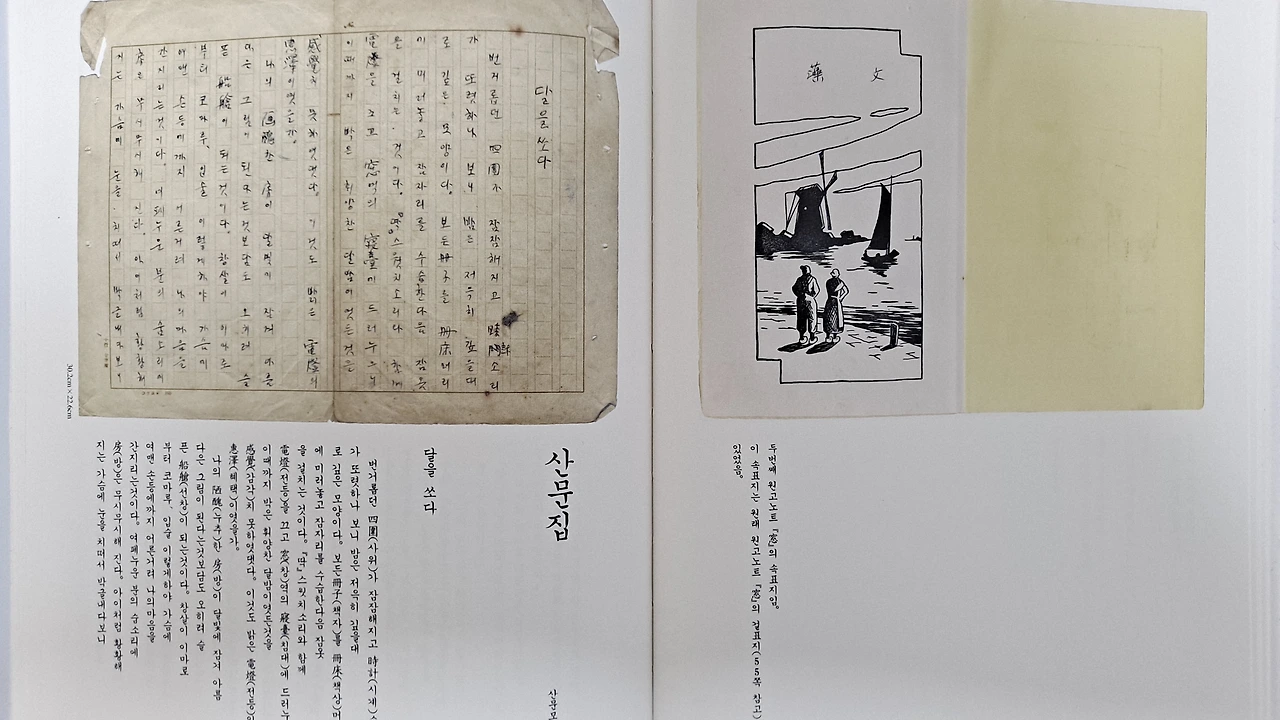 文藻
두번째 원고노트 『窓』의 속표지임.
이 속표지는 원래 원고노트 『窓』의 겉표지(55쪽 참고)
있었음.
달을 쏘다
번거롭던 四圍가 잠잠해지고 時計소리
가 또렷하나 보니 밤은 저윽히 깊을대
로 깊은 모양이다. 보든冊子를 冊床머리
에 미러놓고 잠자리를 수습한다음 잠옷
을 걸치는 것이다. 「딱」스윗치소리와 함께
電燈을 끄고 窓역의 寢臺에 드러누으니
이때까지 밖은 휘양찬 달밤이엿든것을
感覺치 못하엿댓다. 이것도 밝은 電燈의
惠澤이엿을가.
나의 陋醜한 房이 달빛에 잠겨 아름
다은 그림이 된다는것보담도 오히려 슬
픈 船艙이 되는것이다. 창살이 이마로
부터 코마루, 입술 이렇게하야 가슴에
여맨 손등에까지 어른거려 나의마음을
간지리는것이다. 여페누운 분의 숨소리에
房은 무시무시해 진다. 아이처럼 황황해
지는 가슴에 눈을 치떠서 밖글내다보니
30.2cm×22.6cm
산문집
산문모
달을 쏘다
번거롭던 四圍(사위)가 잠잠해지고 時計(시계)
가 또렷하나 보니 밤은 저윽히 깊을대
로 깊은 모양이다. 보든冊子(책자)를 冊床(책상)머
에 미러놓고 잠자리를 수습한다음 잠옷
을 걸치는 것이다. 「딱」스윗치소리와 함께
電燈(전등)을 끄고 窓(창)역의 寢臺(침대)에 드러누
이때까지 밖은 휘양찬 달밤이엿든것을
感覺(감각)치 못하엿댓다. 이것도 밝은 電燈(전등)의
惠澤(혜택)이엿을가.
나의 陋醜(누추)한 房(방)이 달빛에 잠겨 아름
다은 그림이 된다는것보담도 오히려 슬
픈 船艙(선창)이 되는것이다. 창살이 이마로
부터 코마루, 입술 이렇게하야 가슴에
여맨 손등에까지 어른거려 나의마음을
간지리는것이다. 여페누운 분의 숨소리에
房(방)은 무시무시해 진다. 아이처럼 황황해
지는 가슴에 눈을 치떠서 밖글내다보니